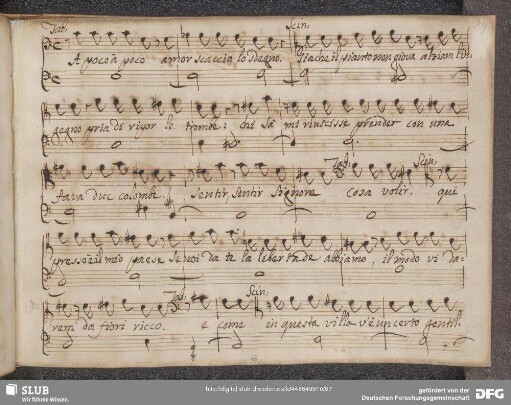 Tab: Scin:
A poco à poco amor scaccia lo sdegno. Giache il pianto non giova
pria di rigor le trombe: chi sà mi riuscisse prender con una
fava due colombe. Tab: Scin:
Sentir sentir Signora cosa voler. qui
presso è il mio paese se voi da te la libertade abbiamo, il modo vi da-
Tab: Scin:
remi da fiori ricco. e come in questa villa v'è un certo gentil:
SLUB
Wir führen Wissen.
http://digital.slub-dresden.de/
gefördert von der
Deutschen Forschungsgemeinschaft
DFG